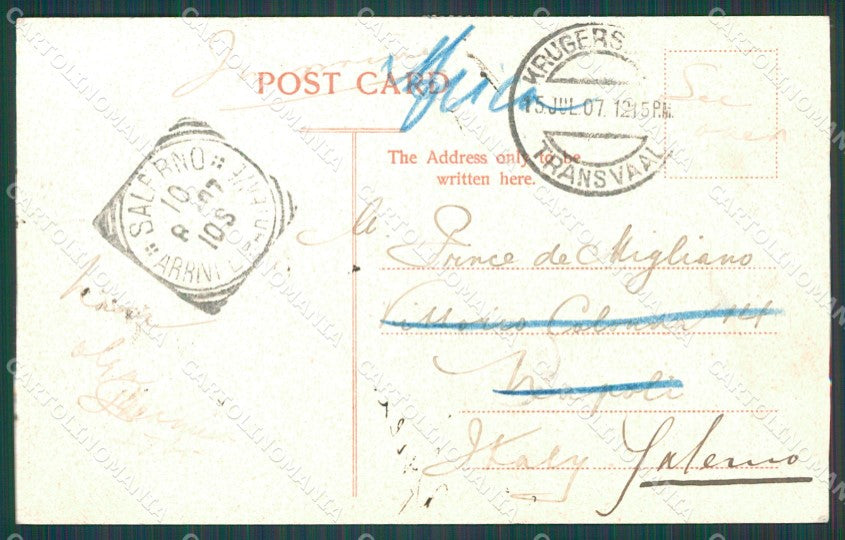 POST CARD
Africa
KRUGERS
15 JUL 07. 12.15 P.M.
TRANSVAAL
See
over
The Address only to be
written here.
SALERNO
10
8 07
10 S
ARRIVI E
Prince de Migliano
Vittorio Colonna 14
Napoli
Italy Salerno
CARTOLINOMANIA